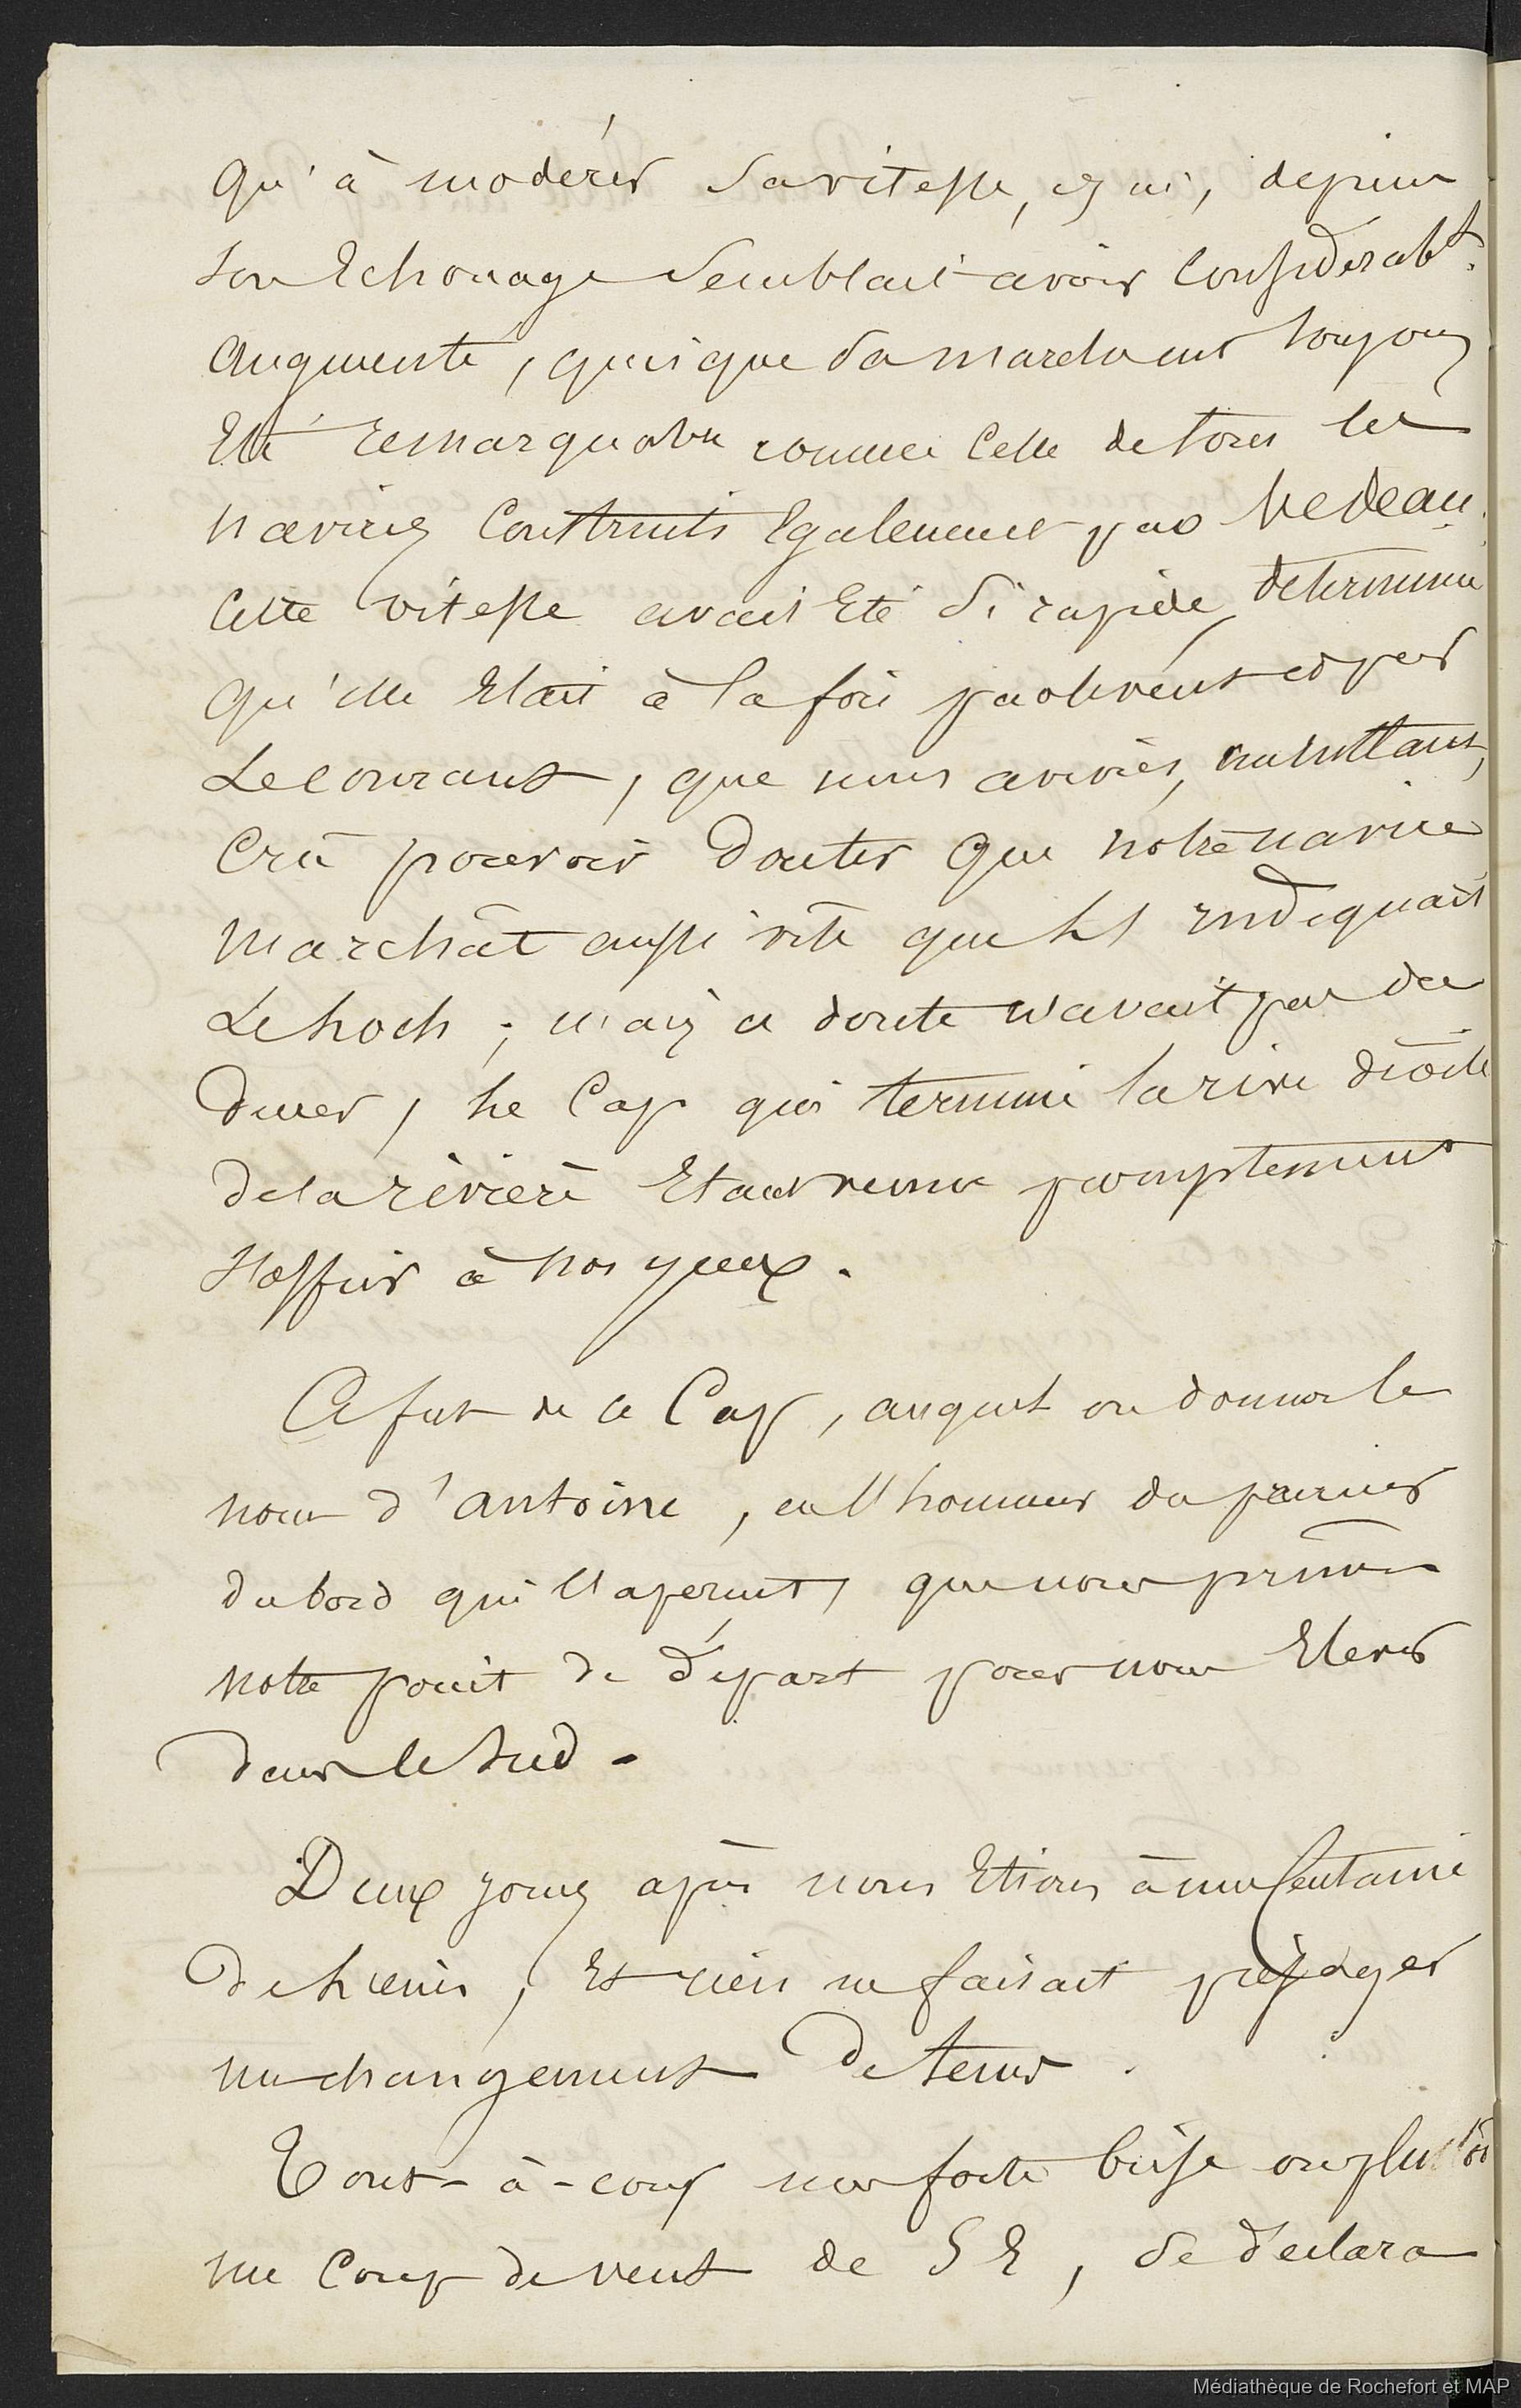 qu'à modérer sa vitesse, qui, depuis
son Echouage semblait avoir considérabt.
augmenté, quoique sa marche eut toujours
Eté remarquable comme celle de tous les
navires construits Egalement par
cette vitesse avait Eté si rapide, déterminée
qu'elle Etait à la fois par le vent et par
Le courant, que nous avions, un instant,
crû pouvoir douter que notre navire
marchât aussi vite que l'indiquait
Le hoch; mais ce doute n'avait pas dû
durer, le Cap qui termine la rive droite
de la rivière Etait venu promptement
s'offrir à nos yeux.
Ce fut de ce Cap, auquel on donna le
nom d'antoine, en l'honneur du premier
du bord qui l'aperçut, que nous prîmes
notre point de départ pour nous Elever
dans le sud.
Deux jours après nous Etions à une centaine
de lieues, Et rien ne faisait présager
un changement de tems.
Tout-à-coup une forte brise ou plutôt
un coup de vent de S E, se déclara
Médiathèque de Rochefort et MAP